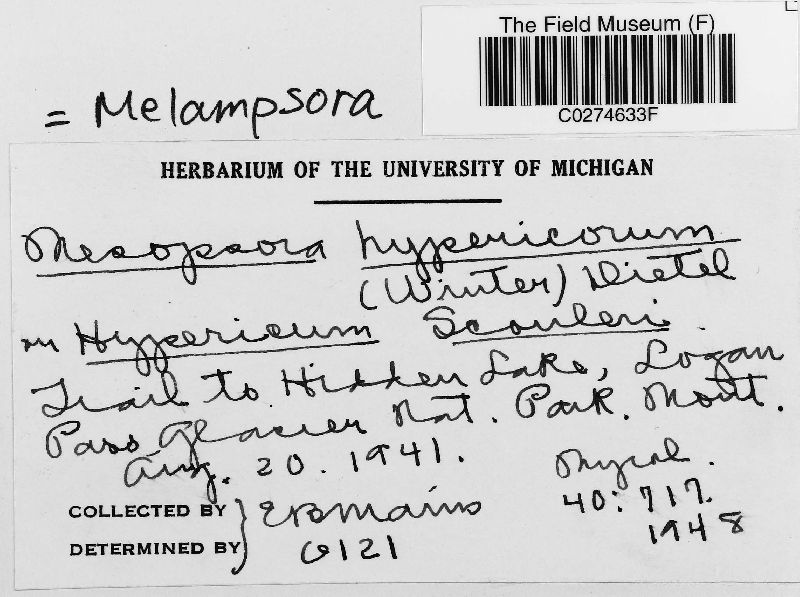 The Field Museum (F)
C0274633F
= Melampsora
HERBARIUM OF THE UNIVERSITY OF MICHIGAN
Mesopsora hypericorum
(Winter) Dietel
on Hypericum Scouleri.
Trail to Hidden Lake, Logan
Pass Glacier Nat. Park. Mont.
Aug. 20. 1941.
Mycol.
40: 717.
1948
COLLECTED BY
DETERMINED BY
EBMains
6121